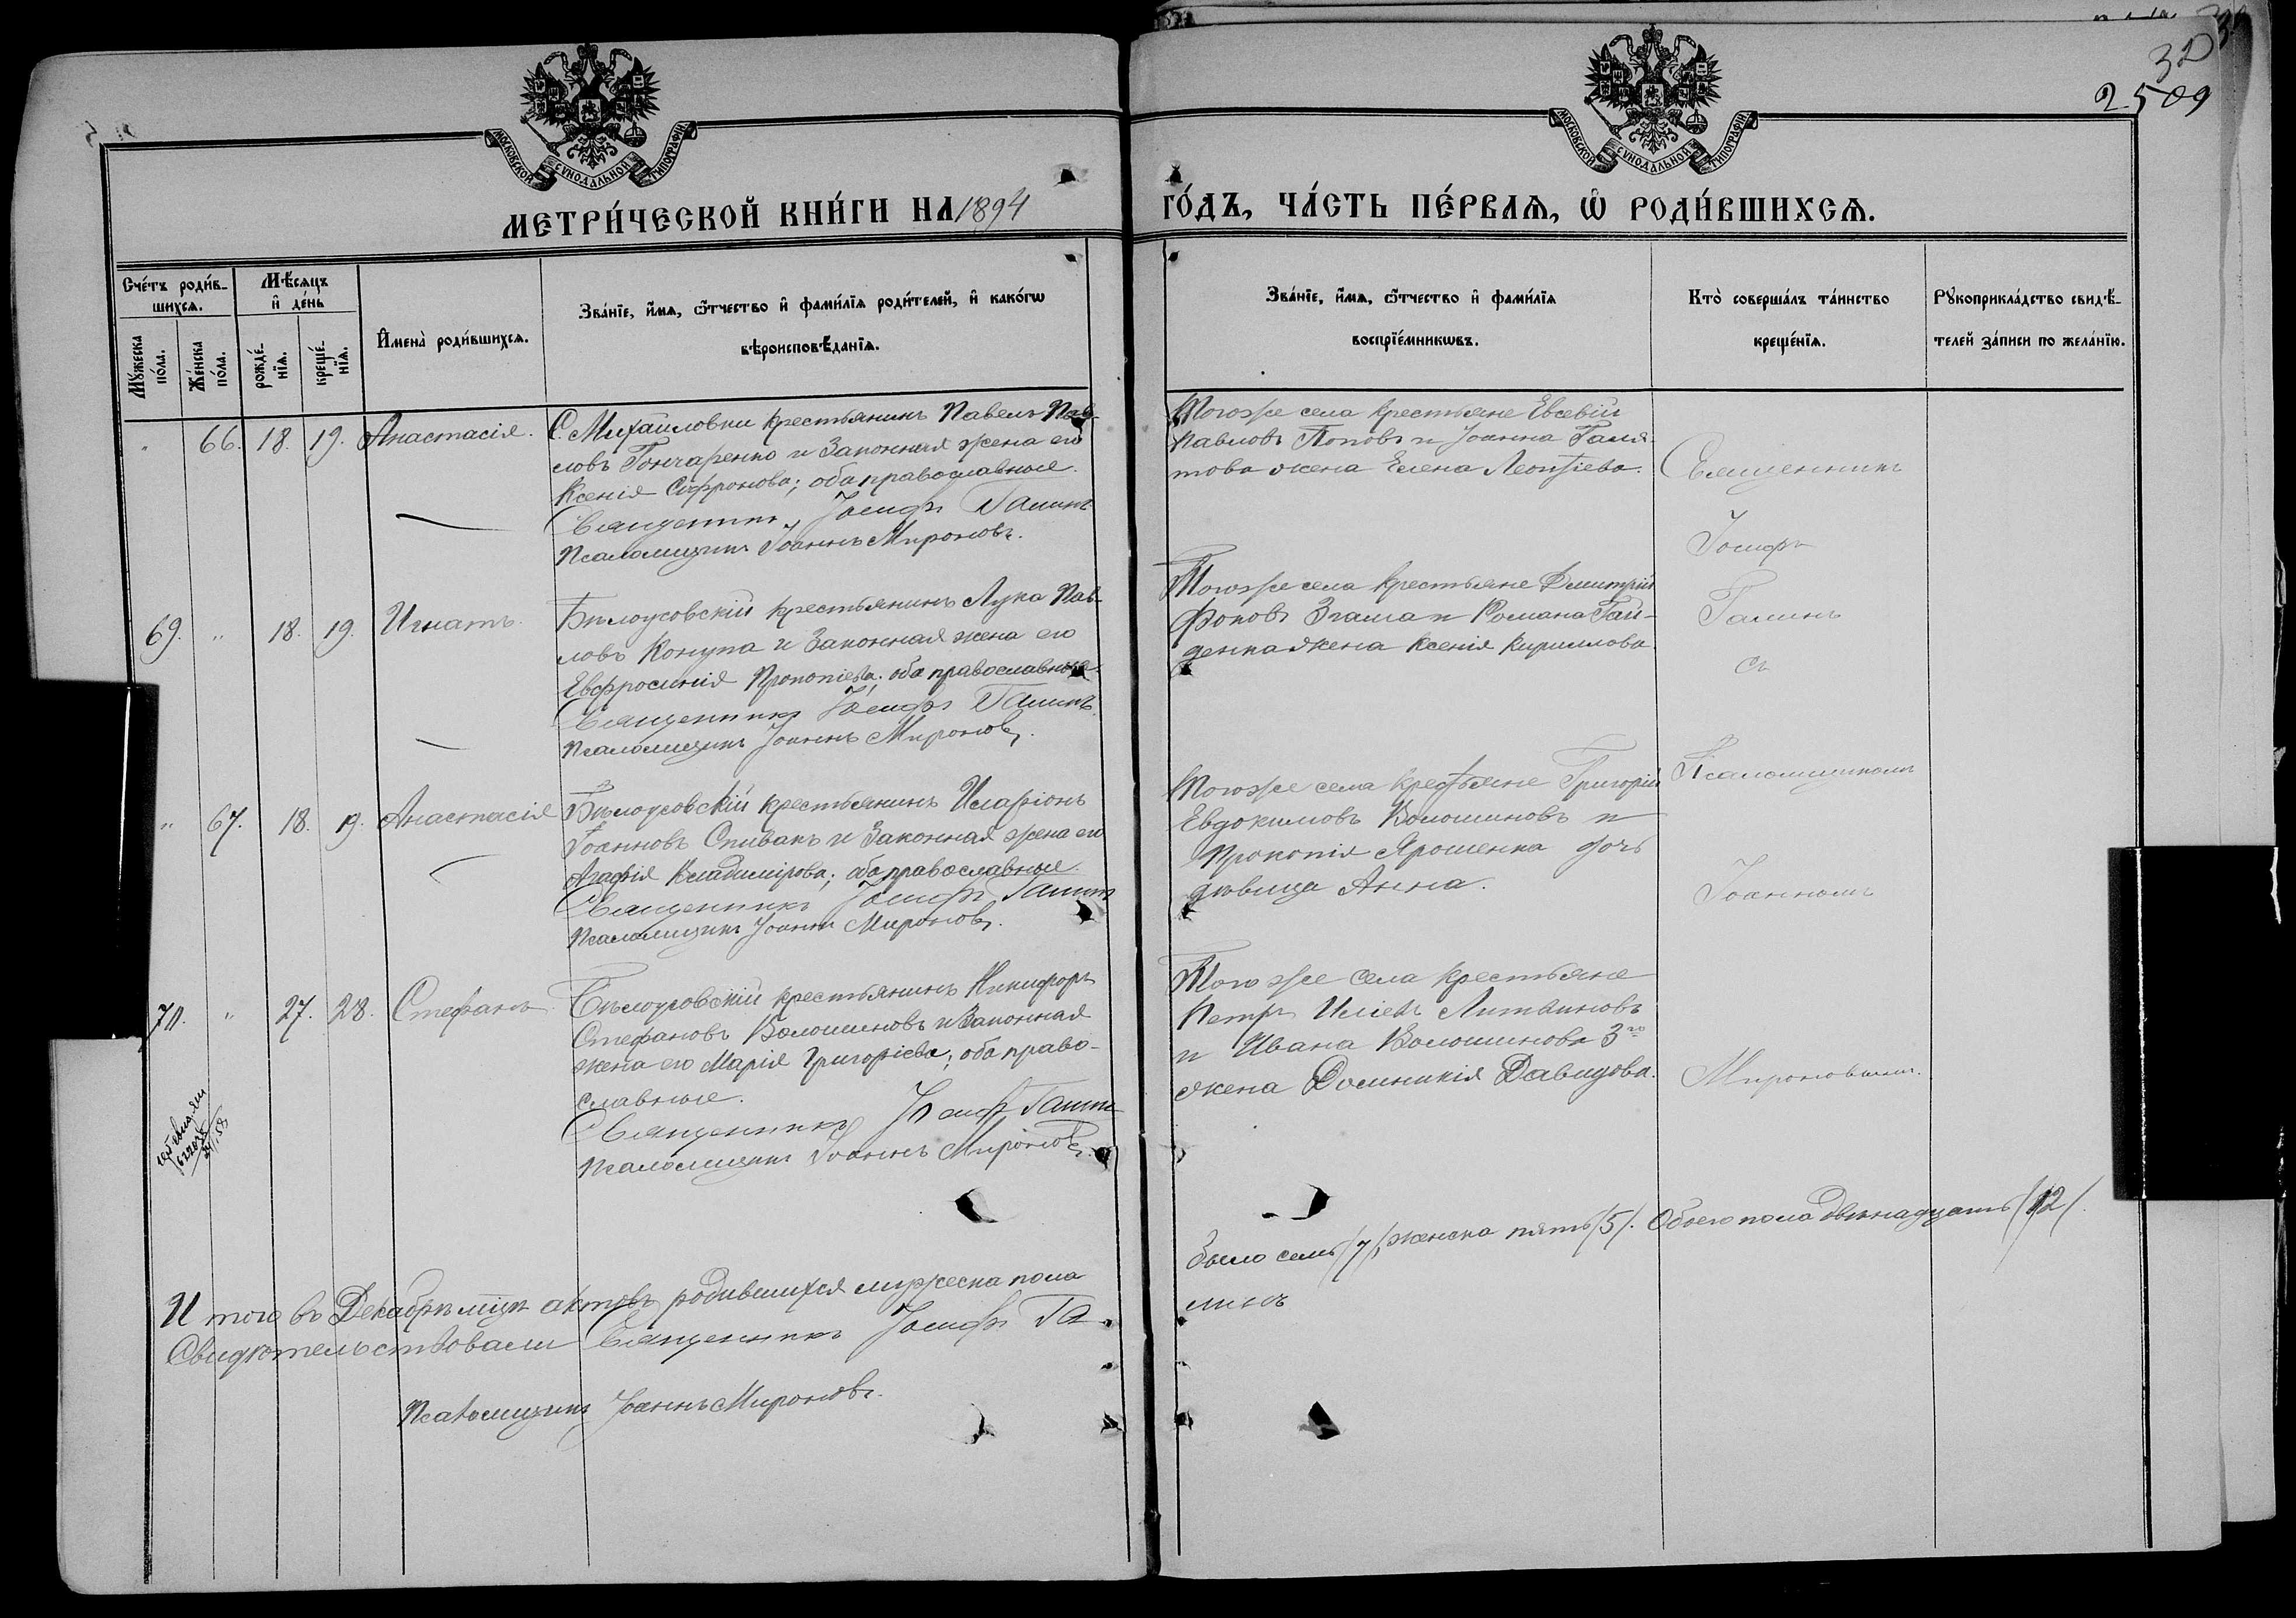 32
2509
МОСКОВСКОЙ СУНОДАЛЬНОЙ ТИПОГРАФІИ
МОСКОВСКОЙ СУНОДАЛЬНОЙ ТИПОГРАФІИ
МЕТРИ́ЧЕСКОЙ КНИ́ГИ НА 1894
ГО́ДЪ, ЧА́СТЬ ПЕ́РВАѦ, Ѡ҆ РОДИ́ВШИХСѦ.
Сче́тъ роди́в-
шихсѧ.
Мѣ́сѧцъ
и҆ де́нь
Мꙋ́жеска
по́ла.
Же́нска
по́ла.
рожде́-
нїѧ.
креще́-
нїѧ.
И҆мена̀ роди́вшихсѧ.
Зва́нїе, и҆́мѧ, ѻ҆́тчество и҆ фами́лїѧ роди́телей, и҆ како́гѡ
вѣроисповѣ́данїѧ.
Зва́нїе, и҆́мѧ, ѻ҆́тчество и҆ фами́лїѧ
воспрїе́мникѡвъ.
Кто̀ соверша́лъ та́инство
креще́нїѧ.
Рꙋкоприкла́дство свидѣ́-
телей за́писи по жела́нїю.
" 66. 18. 19. Анастасія. С. Михайловки крестьянинъ Павелъ Пав-
ловъ Гончаренко и законная жена его
Ксенія Софронова; оба православные.
Священникъ Іосифъ Галинъ
Псаломщикъ Іоаннъ Мироновъ.
Тогоже села крестьяне Евсевій
Павловъ Поповъ и Іоанна
жена Елена Леонтіева.
69. " 18. 19. Игнатъ. Бѣлоусовскій крестьянинъ Лука Пав-
ловъ Конупа и законная жена его
Евфросинія Прокопіева; оба православные.
Священникъ Іосифъ Галинъ.
Псаломщикъ Іоаннъ Мироновъ.
Тогоже села крестьяне Дмитрій
и Романа Гай-
денка жена Ксенія Кириллова
" 67. 18. 19. Анастасія Бѣлоусовскій крестьянинъ Иларіонъ
Іоанновъ Спивакъ и законная жена его
Агафія Владимірова; оба православные.
Священникъ Іосифъ Галинъ
Псаломщикъ Іоаннъ Мироновъ.
Тогоже села крестьяне Григорій
Евдокимовъ Волошиновъ и
Прокопія Ярошенка дочь
дѣвица Анна.
70. " 27. 28. Стефанъ Бѣлоусовскій крестьянинъ Никифоръ
Стефановъ Волошиновъ и законная
жена его Марія Григоріева; оба право-
славные.
Священникъ Іосифъ Галинъ
Псаломщикъ Іоаннъ Мироновъ.
Того же села крестьяне
Петръ Иліевъ Литвиновъ
и Ивана Волошинова 3го
жена Домникія Давидова.
Священникъ
Іосифъ
Галинъ
съ
Псаломщикомъ
Іоанномъ
Мироновымъ.
Итого въ Декабрѣ мцѣ актовъ родившихся мужеска пола
было семь /7/, женска пять /5/. Обоего пола двѣнадцать /12/.
Свидѣтельствовали Священникъ Іосифъ Га-
линъ
Псаломщикъ Іоаннъ Мироновъ.